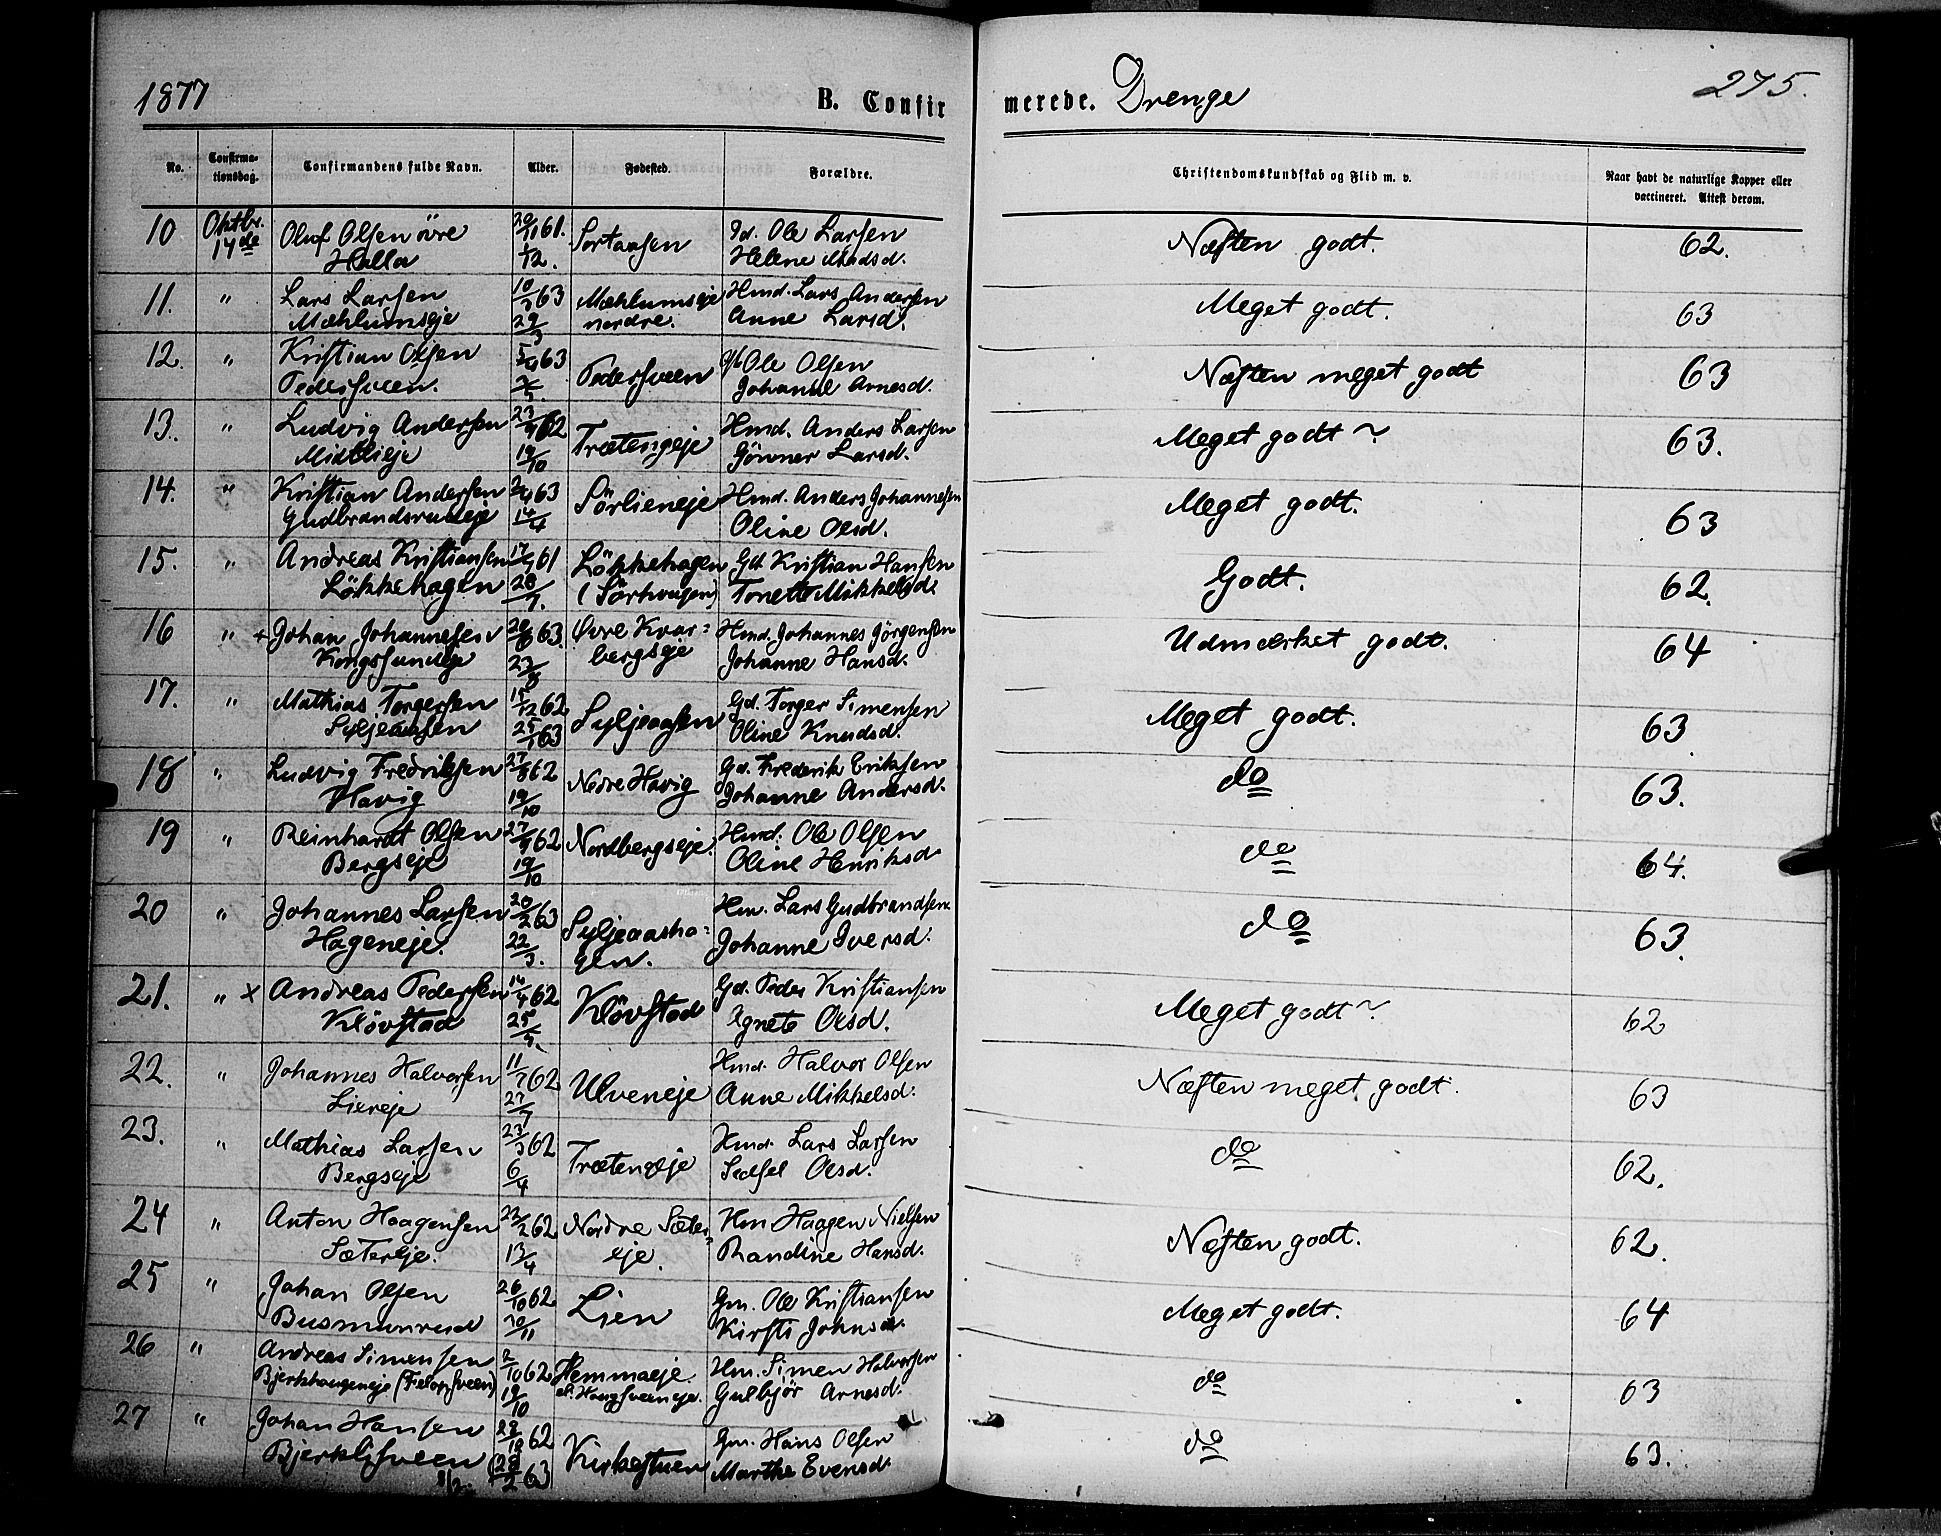 1877
B. Confirmerede. Drenge
275.
No.
Confirmationsdag.
Confirmandens fulde Navn.
Alder.
Fødested.
Forældre.
Christendomskundskab og Flid m. v.
Naar havt de naturlige Kopper eller
vaccineret. Attest derom.
10 Oktbr. Oluf Olsen övre 29/11 61. Sortaasen Gd. Ole Larsen Næsten godt. 62.
14de Halla 1/12. Helene Madsd.
11. " Lars Larsen 10/3 63 Mæhlumseje Hmd. Lars Andersen Meget godt. 63
Mæhlumseje 29/3 nordre. Anne Larsd.
12. " Kristian Olsen 5/4 63 Pedersveen Ole Olsen Næsten meget godt 63
Pedersveen. Johanne Arnesd.
13. " Ludvig Andersen 23/9 62 Trætengeje Hmd. Anders Larsen Meget godt ~ 63.
Midtlieje 19/10 Gönner Larsd.
14. " Kristian Andersen 2/4 63 Sörlieneje Hmd. Anders Johannesen Meget godt. 63
Gudbrandsrudeje 14/4 Oline Olsd.
15. " Andreas Kristiansen 61 Lökkehagen Gd. Kristian Hansen Godt. 62.
Lökkehagen 28/7. (Sörhousen) Tonette Mikkelsd.
16 " + Johan Johannesen 20/8 63. Øvre Kvar= Hmd. Johannes Jörgensen Udmærket godt. 64
Kongssundeje 23/8 bergseje Johanne Hansd.
17. " Mathias Torgersen 15/12 62 Syljeaasen Gd. Torger Simensen Meget godt. 63
Syljeaasen 25/1 63 Oline Knudsd.
18 " Ludvig Fredriksen 27/8 62 Nedre Havig Gd. Frederik Eriksen do 63.
Havig 19/10 Johanne Andersd.
19 " Reinhardt Olsen 27/9 62 Nordbergseje. Hmd. Ole Olsen do 64.
Bergseje 19/10 Oline Henriksd
20 " Johannes Larsen 20/2 63 Syljeaasha= Hm. Lars Gudbrandsen do 63.
Hageneje. 22/3. gen. Johanne Iversd.
21. " x Andreas Pedersen 14/4 62 Klövstad Gd. Peder Kristiansen Meget godt ~ 62
Klövstad 25/5. Agnete Olsd.
22. " Johannes Halvorsen 11/7 62 Ulveneje Hmd. Halvor Olsen Næsten meget godt. 63
Liereje 27/7 Anne Mikkelsd.
23. " Mathias Larsen 23/3 62 Træteneje Hmd. Lars Larsen do 62.
Bergseje 6/4 Sedsel Olsd.
24 " Anton Haagensen 22/2 62 Nordre Sæter= Hm Haagen Nielsen Næsten godt. 62.
Sætereje. 13/4 eje. Randine Hansd.
25 " Johan Olsen 26/10 62 Lien Gm. Ole Kristiansen Meget godt. 64
Busmunrud 30/11 Kirsti Johnsd.
26 " Andreas Simensen 2/10 62 Hemmaeje Hm. Simen Halvorsen do 63
Bjerkhaugeneje 19/10 el. Haugsveeneje. Gulbjör Arnesd.
27 " Johan Hansen 29/10 62 Kirkestuen Gm. Hans Olsen do 63.
Bjerklysveen 63 Marthe Evensd.